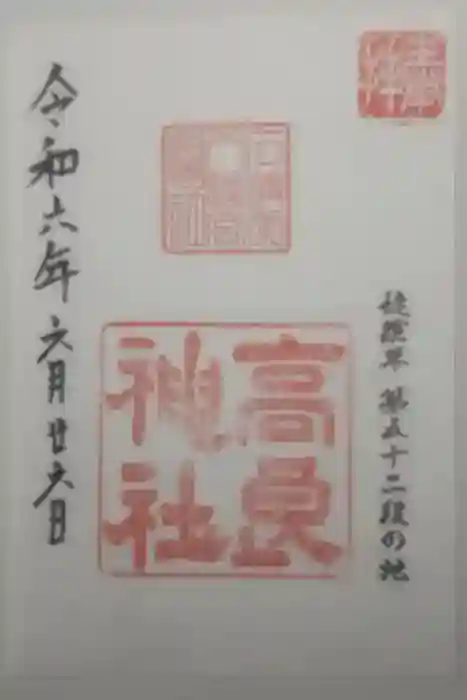 徒然草 第五十二段の地
高良
神社
令和六年 六月廿六日